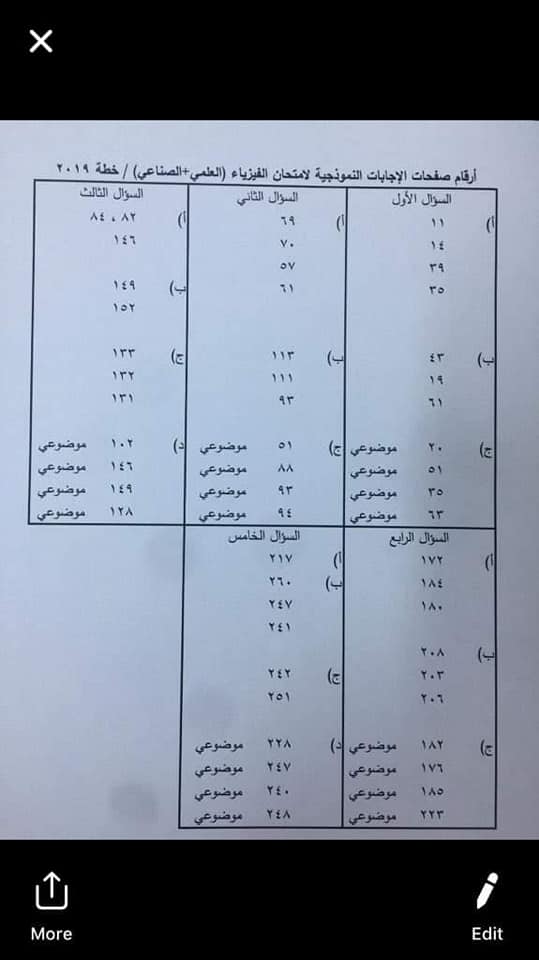 أرقام صفحات الإجابات النموذجية لامتحان الفيزياء (العلمي+الصناعي) / خطة ٢٠١٩
السؤال الأول
أ) ١١
١٤
٣٩
٣٥
ب) ٤٣
١٩
٦١
ج) ٢٠ موضوعي
٥١ موضوعي
٣٥ موضوعي
٦٣ موضوعي
السؤال الثاني
أ) ٦٩
٧٠
٥٧
٦١
ب) ١١٣
١١١
٩٣
ج) ٥١ موضوعي
٨٨ موضوعي
٩٣ موضوعي
٩٤ موضوعي
السؤال الثالث
أ) ٨٢ ، ٨٤
١٤٦
ب) ١٤٩
١٥٢
ج) ١٣٣
١٣٢
١٣١
د) ١٠٢ موضوعي
١٤٦ موضوعي
١٤٩ موضوعي
١٢٨ موضوعي
السؤال الرابع
أ) ١٧٢
١٨٤
١٨٠
ب) ٢٠٨
٢٠٣
٢٠٦
ج) ١٨٢ موضوعي
١٧٦ موضوعي
١٨٥ موضوعي
٢٢٣ موضوعي
السؤال الخامس
أ) ٢١٧
ب) ٢٦٠
٢٤٧
٢٤١
ج) ٢٤٢
٢٥١
د) ٢٢٨ موضوعي
٢٤٧ موضوعي
٢٤٠ موضوعي
٢٤٨ موضوعي
More
Edit